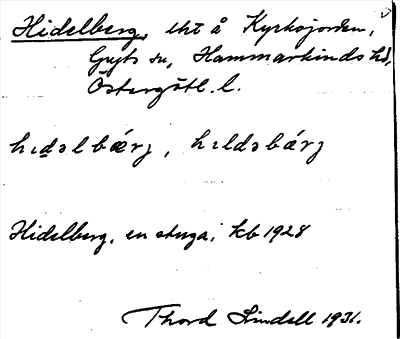 Hidelberg, lht å Kyrkojorden,
Gryts sn, Hammarkinds hd,
Östergötl. l.
hıdəlbǽrj, hıldəbárj
Hidelberg, en stuga, kb 1928
Thord Lindell 1931.